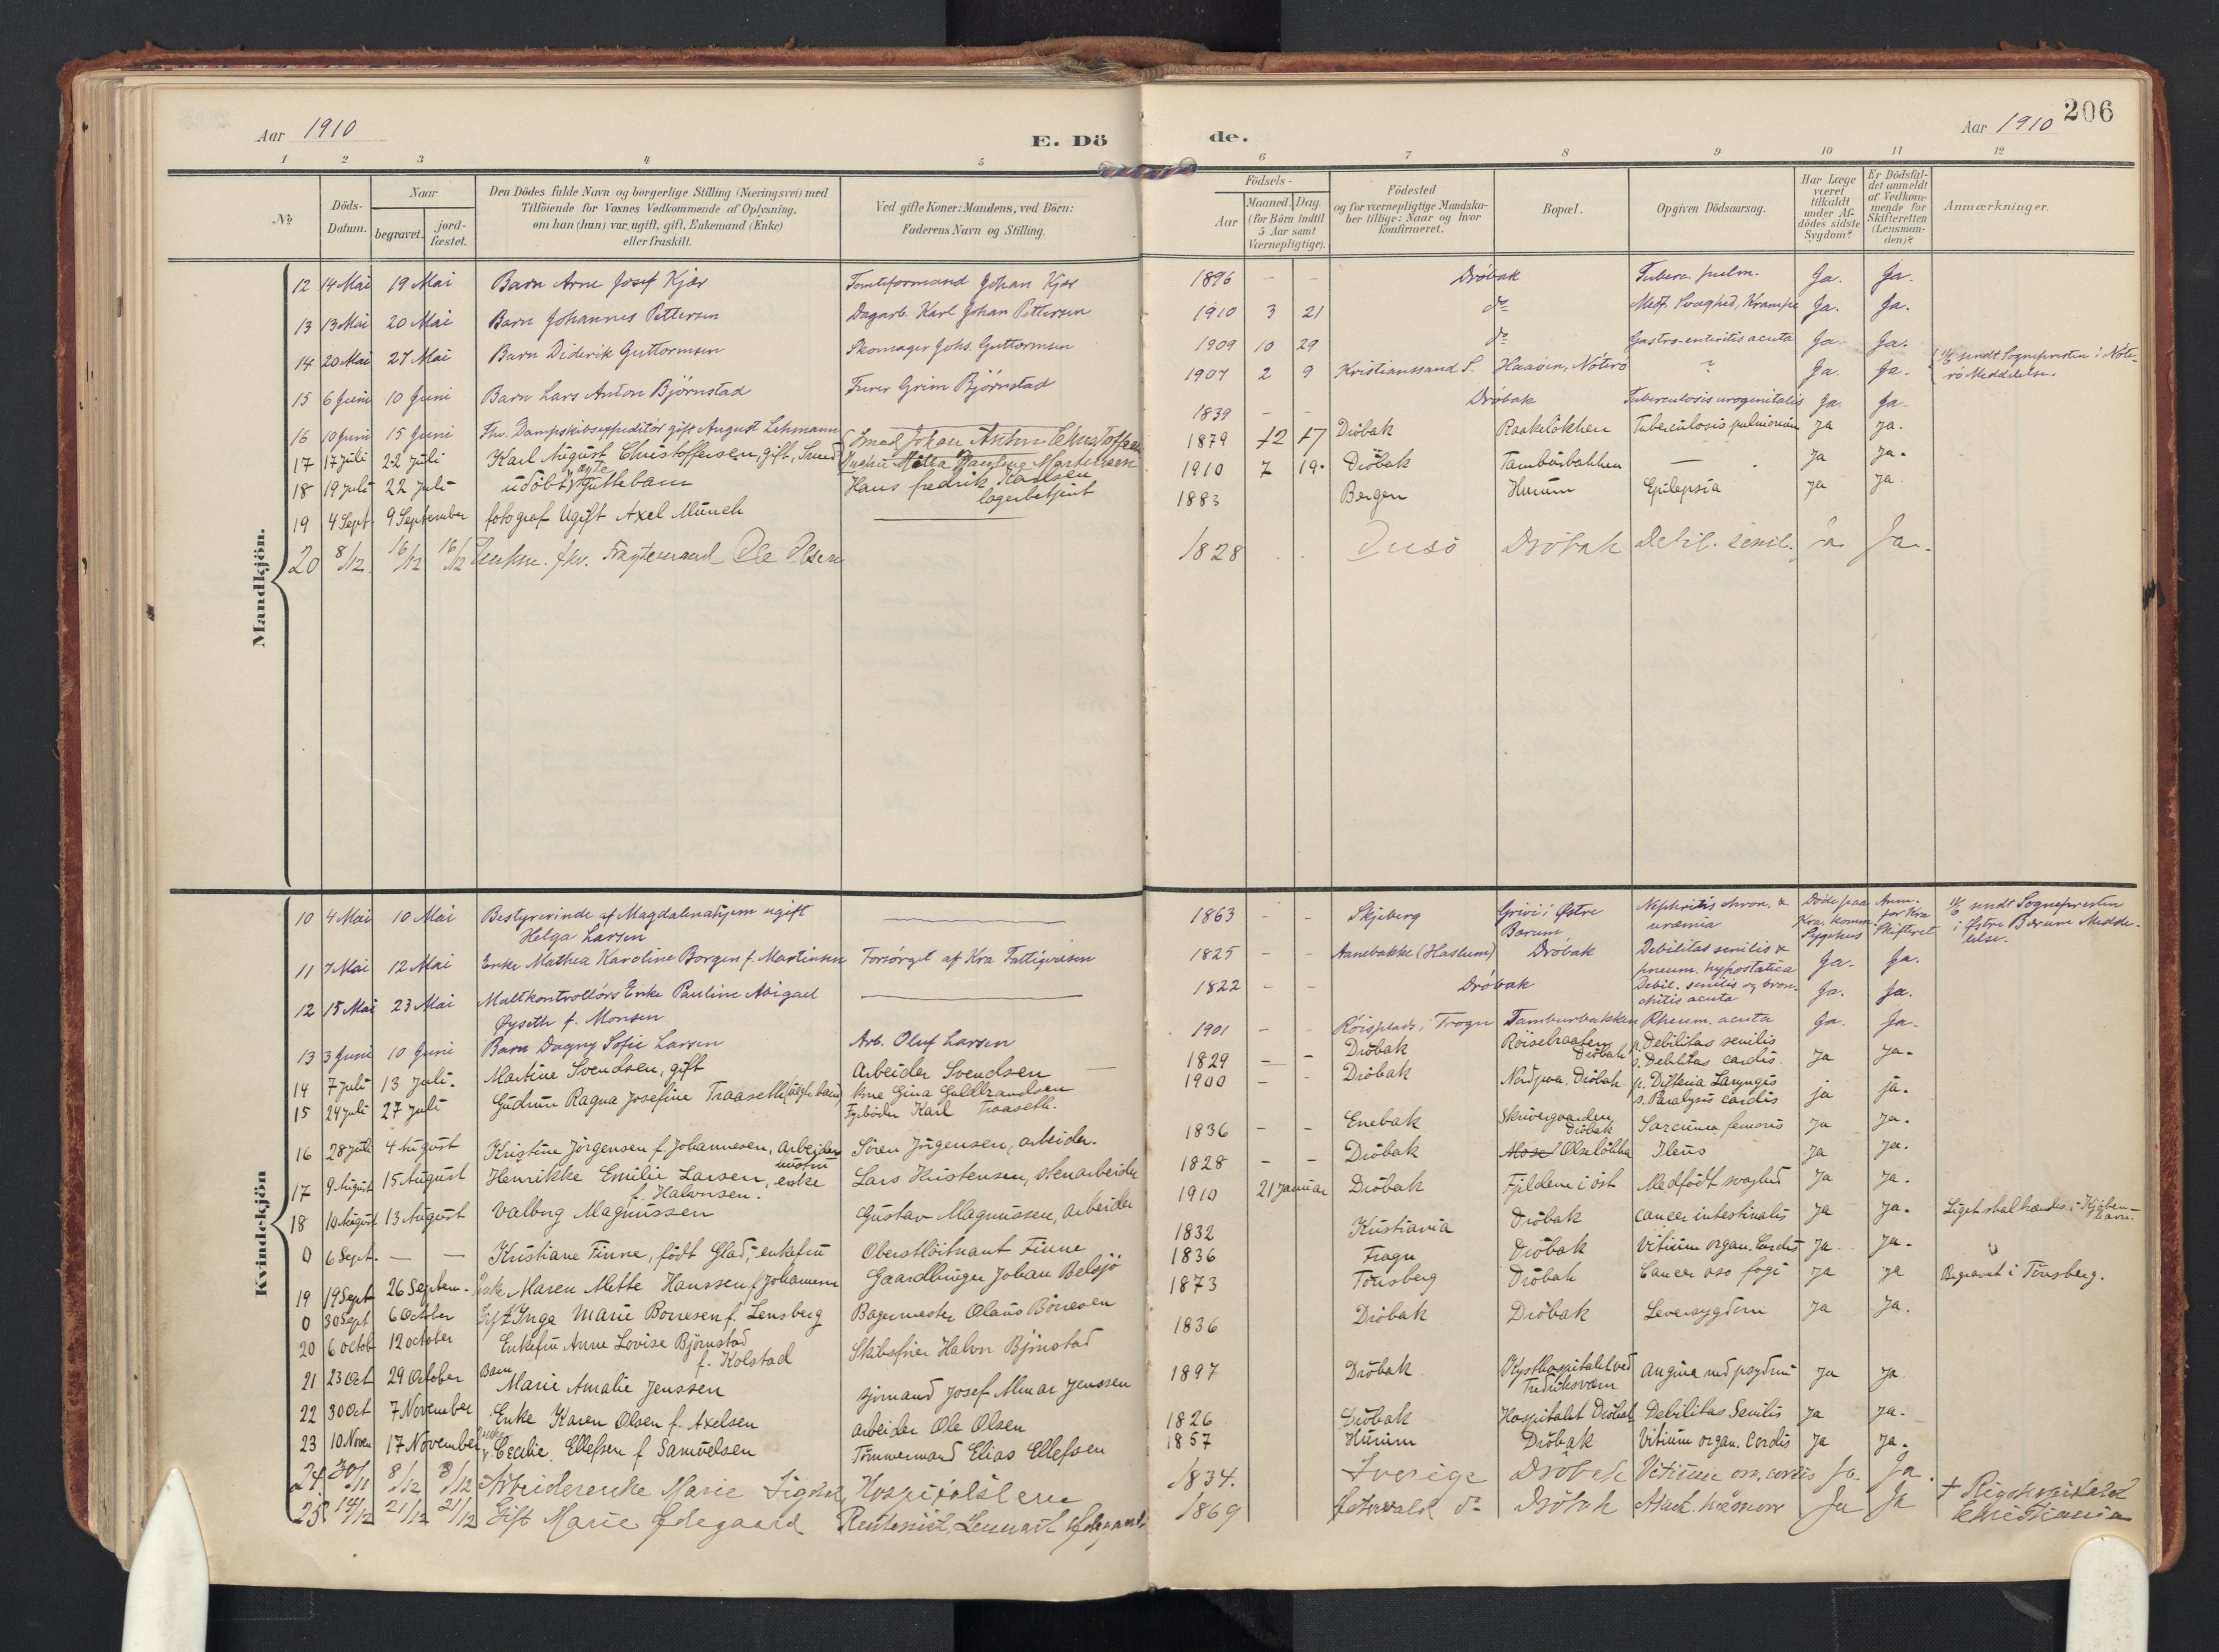 Aar 1910
E. Döde.
Aar 1910
206
1 2 3 4 5 6 7 8 9 10 11 12
№
Döds-Datum.
Naar
begravet.
jord-fæstet.
Den Dödes fulde Navn og borgerlige Stilling (Næringsvei) med
Tilföiende for Voxnes Vedkommende af Oplysning,
om han (hun) var ugift, gift, Enkemand (Enke)
eller fraskilt.
Ved gifte Koner: Mandens, ved Börn:
Faderens Navn og Stilling.
Födsels-
Aar
Maaned. Dag.
(for Börn indtil
5 Aar samt
Værnepligtige).
Födested
og for værnepligtige Mandska-
ber tillige: Naar og hvor
Konfirmeret.
Bopæl.
Opgiven Dödsaarsag.
Har Læge
været
tilkaldt
under Af-
dödes sidste
Sygdom?
Er Dödsfal-
det anmeldt
af Vedkom-
mende for
Skifteretten
(Lensman-
den)?
Anmærkninger.
Mandkjön.
12 14 Mai 19 Mai Barn Arne Josef Kjær Tomteformand Johan Kjær 1896 – – Dröbak Tuberc. pulm. Ja. Ja.
13 13 Mai 20 Mai Barn Johannes Pettersen Dagarb. Karl Johan Pettersen 1910 3 21 do Medf. Svaghed, Krampe Ja. Ja.
14 20 Mai 27 Mai Barn Diderik Guttormsen Skomager Johs. Guttormsen 1909 10 29 do Gastro-enteritis acuta Ja. Ja.
15 6 Juni 10 Juni Barn Lars Anton Björnstad Furer Grim Björnstad 1907 2 9 Kristianssand S. Haaöin, Nöterö ? Ja. Ja. sendt Sognepresten i Nöte-
rö Meddelelse.
16 10 Juni 15 Juni Fhv. Dampskibsexpeditör gift August Lehmann 1839 – – Dröbak Tuberculosis urogenitalis Ja. Ja.
17 17 juli 22 juli Karl August Christoffersen, gift, Smed Smed Johan Anton Christoffersen
Hustru Mette Karoline Martinsen 1879 12 17 Dröbak Raakelökken Tuberculosis pulmonum ja ja.
18 19 juli 22 juli udöbt ægte Guttebarn Hans Fredrik Karlsen
lagerbetjent 1910 7 19. Dröbak Tamburbakken — ja ja.
19 4 Sept. 9 September fotograf Ugift Axel Munch — 1883 Bergen Hurum Epilepsia ja ja
20 8/12 16/12 16/12 Enkem. fhv. Fragtemand Ole Olsen 1828 Dröbak Debil. senil. Ja Ja.
Kvindekjön
10 4 Mai 10 Mai Bestyrerinde af Magdalenahjem ugift
Helga Larsen — 1863 – – Skjeberg Grini i Østre
Bærum Nephritis chron. &
uræmia Döde paa
Kra. komm.
Sygehus Anm.
for Kra
Skifteret sendt Sognepresten
i Østre Bærum Medde-
lelse.
11 7 Mai 12 Mai Enke Mathea Karoline Borgen f. Martinsen Forsörget af Kra Fattigvæsen 1825 – – Aanebakke (Haslum) Dröbak Debilitas senilis &
pneum. hypostatica Ja. Ja.
12 15 Mai 23 Mai Maltkontrollörs Enke Pauline Abigael
Øyseth f. Monsen — 1822 – – Dröbak Debil. senilis og bron-
chitis acuta Ja. Ja.
13 3 Juni 10 Juni Barn Dagny Sofie Larsen Arb. Oluf Larsen 1901 – – Röisplads i Frogn Tamburbakken Rheum. acuta Ja. Ja.
14 7 juli 13 juli. Martine Svendsen, gift Arbeider Svendsen — 1829 – – Dröbak Röiselraaten
Dröbak p. Debilitas senilis
s. Debilitas cordis ja ja.
15 24 juli 27 juli Gudrun Ragna Josefine Traaseth (uægte barn) Kone Gina Guldbrandsen
Fyrböder Karl Traaseth. 1900 – – Dröbak Nordjwa, Dröbak p. Difteria Laryngis
s. Paralysis cordis ja ja.
16 28 juli 4 August Kristine Jörgensen f. Johannesen, arbeider
hustru Sören Jörgensen, arbeider. 1836 – – Enebak Skrivergaarden
Dröbak Sarcoma femoris ja ja.
17 9 August 15 August Henrikke Emilie Larsen, enke
f. Halvorsen. Lars Kristensen, stenarbeider 1828 – – Dröbak Olselökka Ileus ja ja.
18 10 August 13 August Valborg Magnussen Gustav Magnussen, arbeider 1910 21 januar Dröbak Fjeldene i öst Medfödt svaghed ja ja.
0 6 Sept. — — Kristiane Finne, födt Glad, enkefru Oberstlöitnant Finne 1832 Kristiania Dröbak Cancer intestinalis ja ja. Liget skal brændes i Kjöben-
havn.
19 19 Sept 26 Septem. Enke Maren Mette Hanssen f. Johannesen Gaardbruger Johan Belsjö 1836 Frogn Dröbak Vitium organ. Cordis ja ja.
0 30 Sept 6 October Gift Inga Marie Borresen f. Lensberg Bagermester Olaus Börresen 1873 Tönsberg Dröbak Cancer oso fogi ja ja Begravet i Tönsberg.
20 6 octob 12 october Enkefru Anne Lovise Björnstad
f. Kolstad Skibsförer Halvor Björnstad 1836 Dröbak Dröbak Leversygdom ja ja.
21 23 Oct 29 October Barn
Marie Amalie Jenssen sjömand Josef Almar Jenssen 1897 Dröbak Kysthospitalet ved
Fredriksværn ja ja
22 30 Oct 7 November Enke Karen Olsen f. Axelsen arbeider Ole Olsen 1826 Dröbak Hospitalet Dröbak Debilitas Senilis ja ja.
23 10 Novem 17 November Cecilie Ellefsen f Samuelsen Tömmermand Elias Ellefsen 1857 Hurum Dröbak Vitium organ. Cordis ja ja.
24 30/11 8/12 8/12 Arbeiderenke Marie Hospitalslem 1834. Sverige Dröbak Vitium org. cordis Ja Ja.
25 14/12 21/12 21/12 Gift Marie Ødegaard Lennart Ødegaard 1869 do Dröbak Akut Ja Ja † Rigshospitalet
Christiania